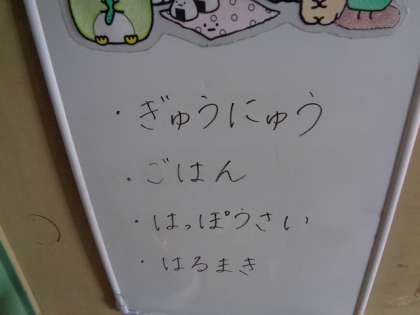 ・ぎゅうにゅう
・ごはん
・はっぽうさい
・はるまき